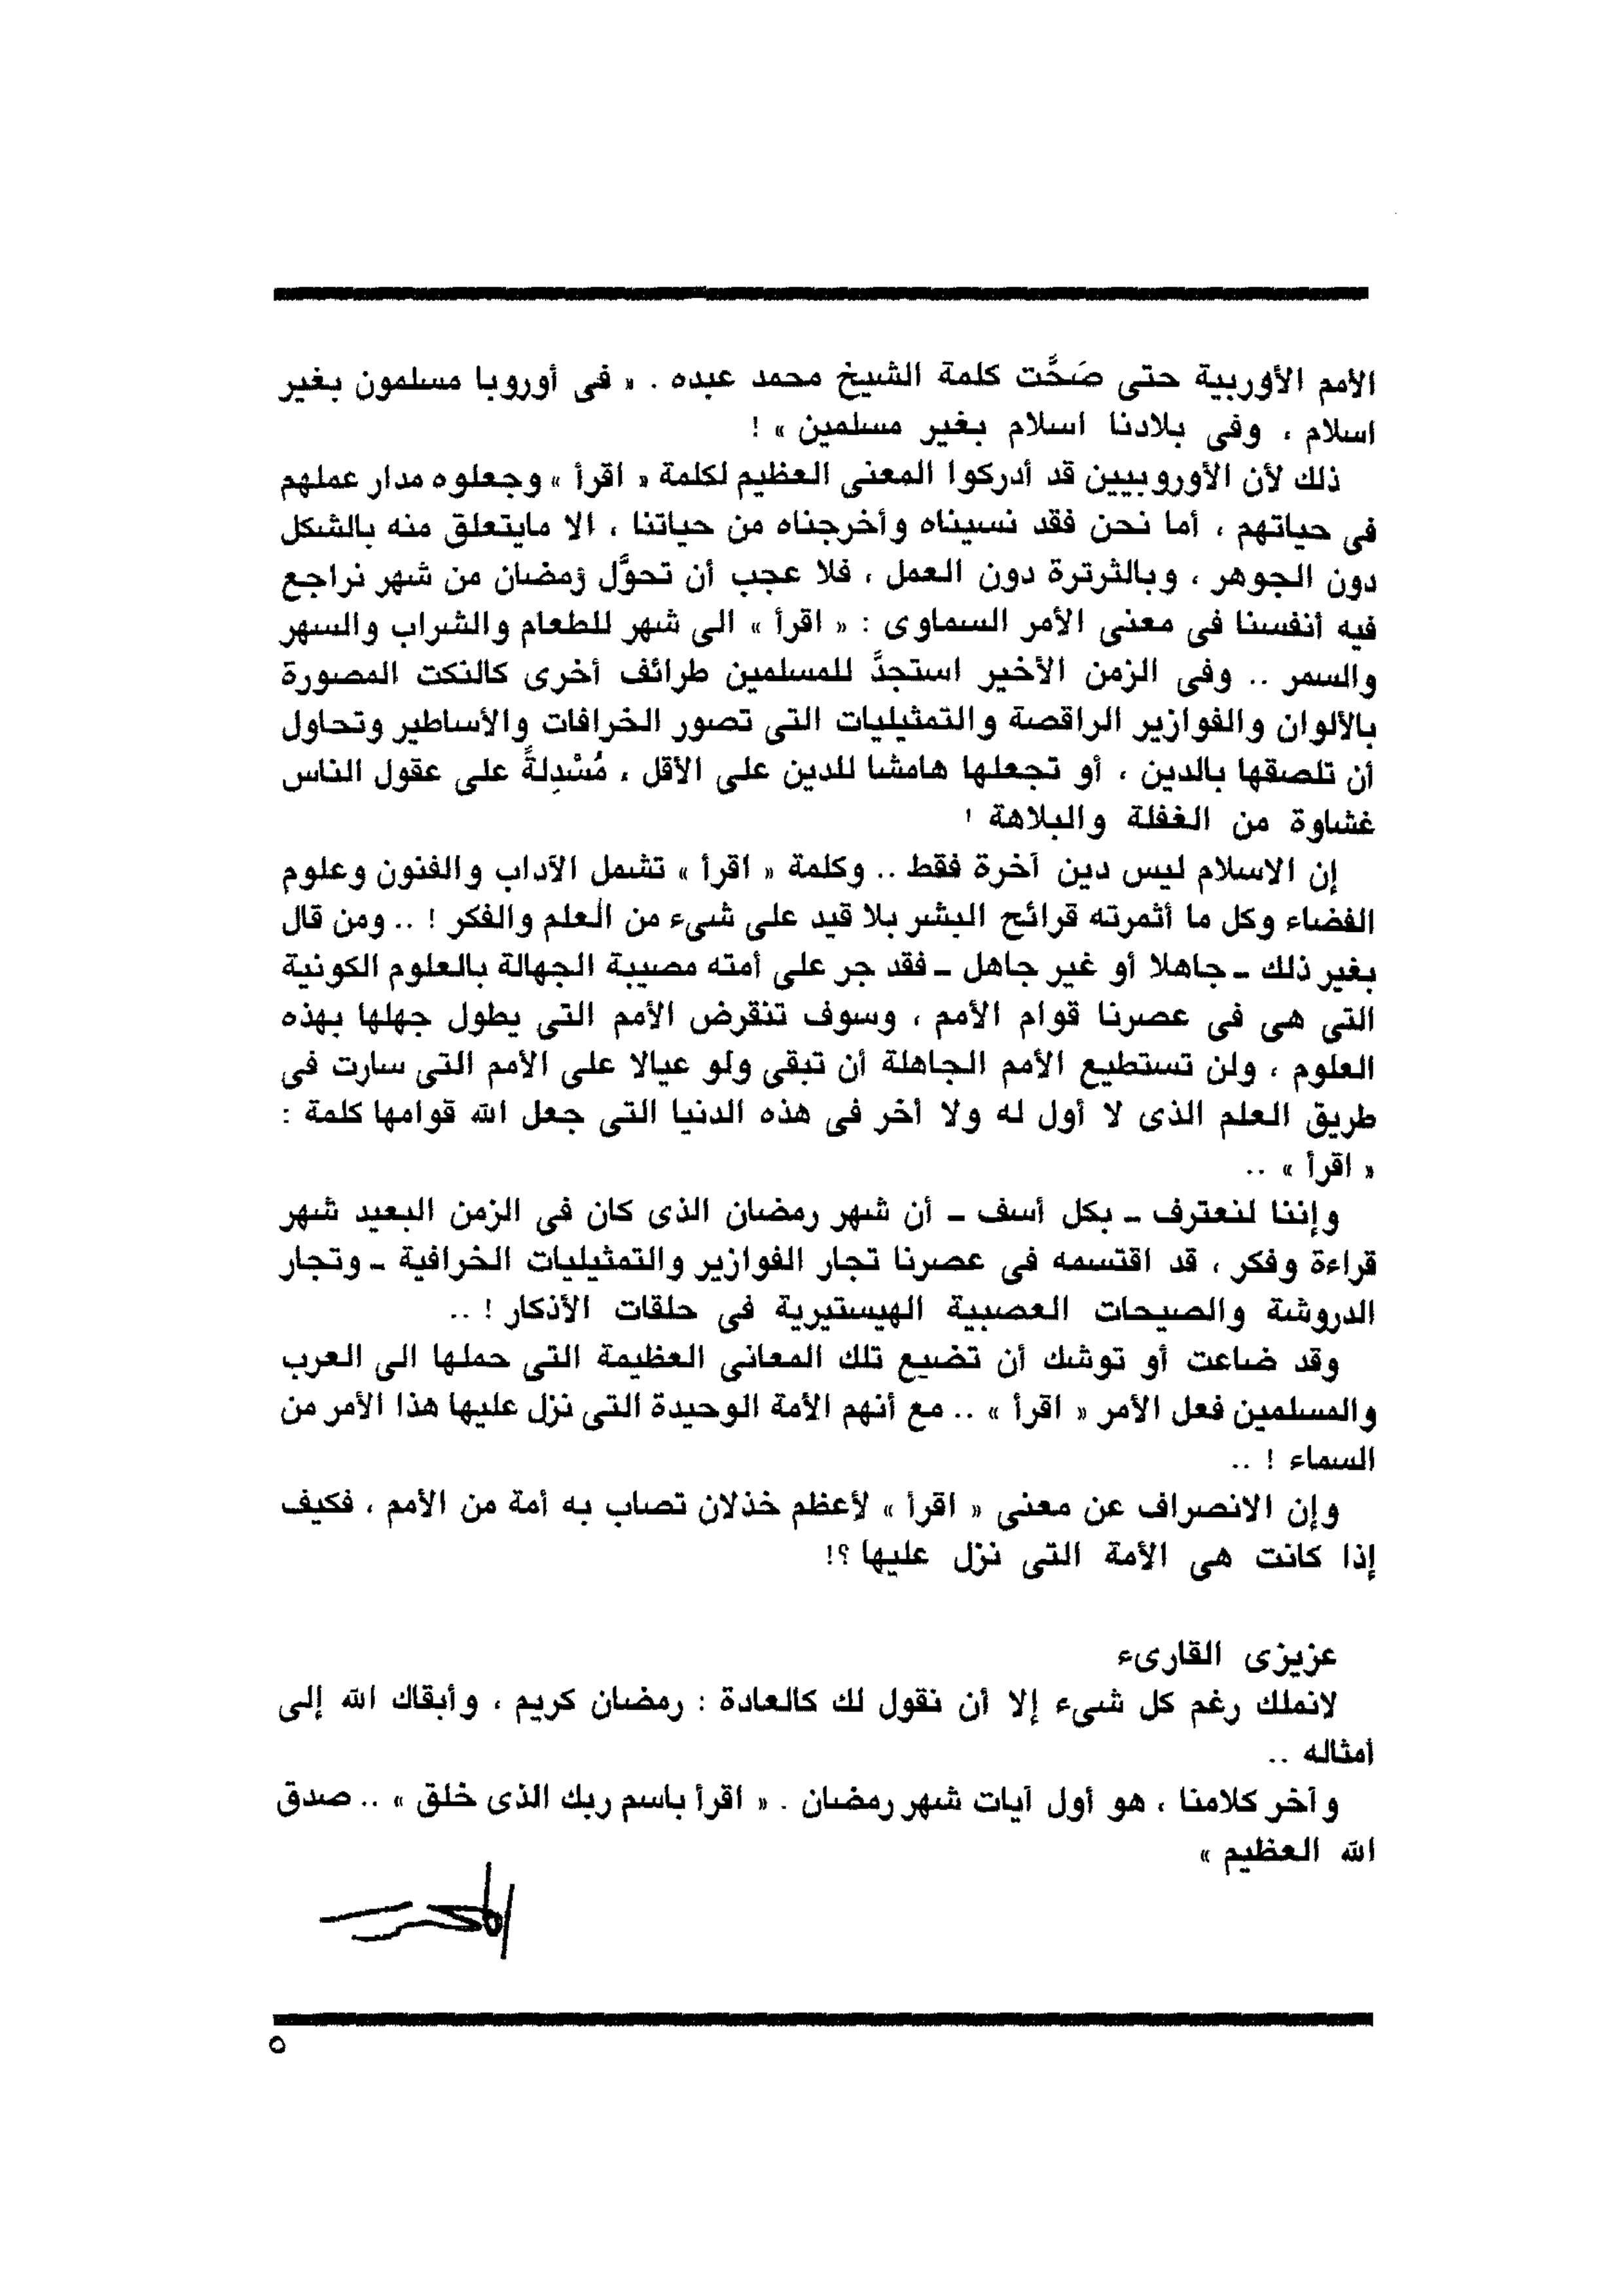 الأمم الأوربية حتى صَحَّت كلمة الشيخ محمد عبده . « فى أوروبا مسلمون بغير
اسلام ، وفى بلادنا اسلام بغير مسلمين » !
ذلك لأن الأوروبيين قد أدركوا المعنى العظيم لكلمة « اقرأ » وجعلوه مدار عملهم
فى حياتهم ، أما نحن فقد نسيناه وأخرجناه من حياتنا ، الا مايتعلق منه بالشكل
دون الجوهر ، وبالثرثرة دون العمل ، فلا عجب أن تحوَّل رمضان من شهر نراجع
فيه أنفسنا فى معنى الأمر السماوى : « اقرأ » الى شهر للطعام والشراب والسهر
والسمر .. وفى الزمن الأخير استجدَّ للمسلمين طرائف أخرى كالنكت المصورة
بالألوان والفوازير الراقصة والتمثيليات التى تصور الخرافات والأساطير وتحاول
أن تلصقها بالدين ، أو تجعلها هامشا للدين على الأقل ، مُسْدِلةً على عقول الناس
غشاوة من الغفلة والبلاهة !
إن الاسلام ليس دين آخرة فقط .. وكلمة « اقرأ » تشمل الآداب والفنون وعلوم
الفضاء وكل ما أثمرته قرائح البشر بلا قيد على شىء من العلم والفكر ! .. ومن قال
بغير ذلك ـ جاهلا أو غير جاهل ـ فقد جر على أمته مصيبة الجهالة بالعلوم الكونية
التى هى فى عصرنا قوام الأمم ، وسوف تنقرض الأمم التى يطول جهلها بهذه
العلوم ، ولن تستطيع الأمم الجاهلة أن تبقى ولو عيالا على الأمم التى سارت فى
طريق العلم الذى لا أول له ولا آخر فى هذه الدنيا التى جعل الله قوامها كلمة :
« اقرأ » ..
وإننا لنعترف ـ بكل أسف ـ أن شهر رمضان الذى كان فى الزمن البعيد شهر
قراءة وفكر ، قد اقتسمه فى عصرنا تجار الفوازير والتمثيليات الخرافية ـ وتجار
الدروشة والصيحات العصبية الهيستيرية فى حلقات الأذكار ! ..
وقد ضاعت أو توشك أن تضيع تلك المعانى العظيمة التى حملها الى العرب
والمسلمين فعل الأمر « اقرأ » .. مع أنهم الأمة الوحيدة التى نزل عليها هذا الأمر من
السماء ! ..
وإن الانصراف عن معنى « اقرأ » لأعظم خذلان تصاب به أمة من الأمم ، فكيف
إذا كانت هى الأمة التى نزل عليها ؟!
عزيزى القارىء
لانملك رغم كل شىء إلا أن نقول لك كالعادة : رمضان كريم ، وأبقاك الله إلى
أمثاله ..
وآخر كلامنا ، هو أول آيات شهر رمضان . « اقرأ باسم ربك الذى خلق » .. صدق
الله العظيم »
٥